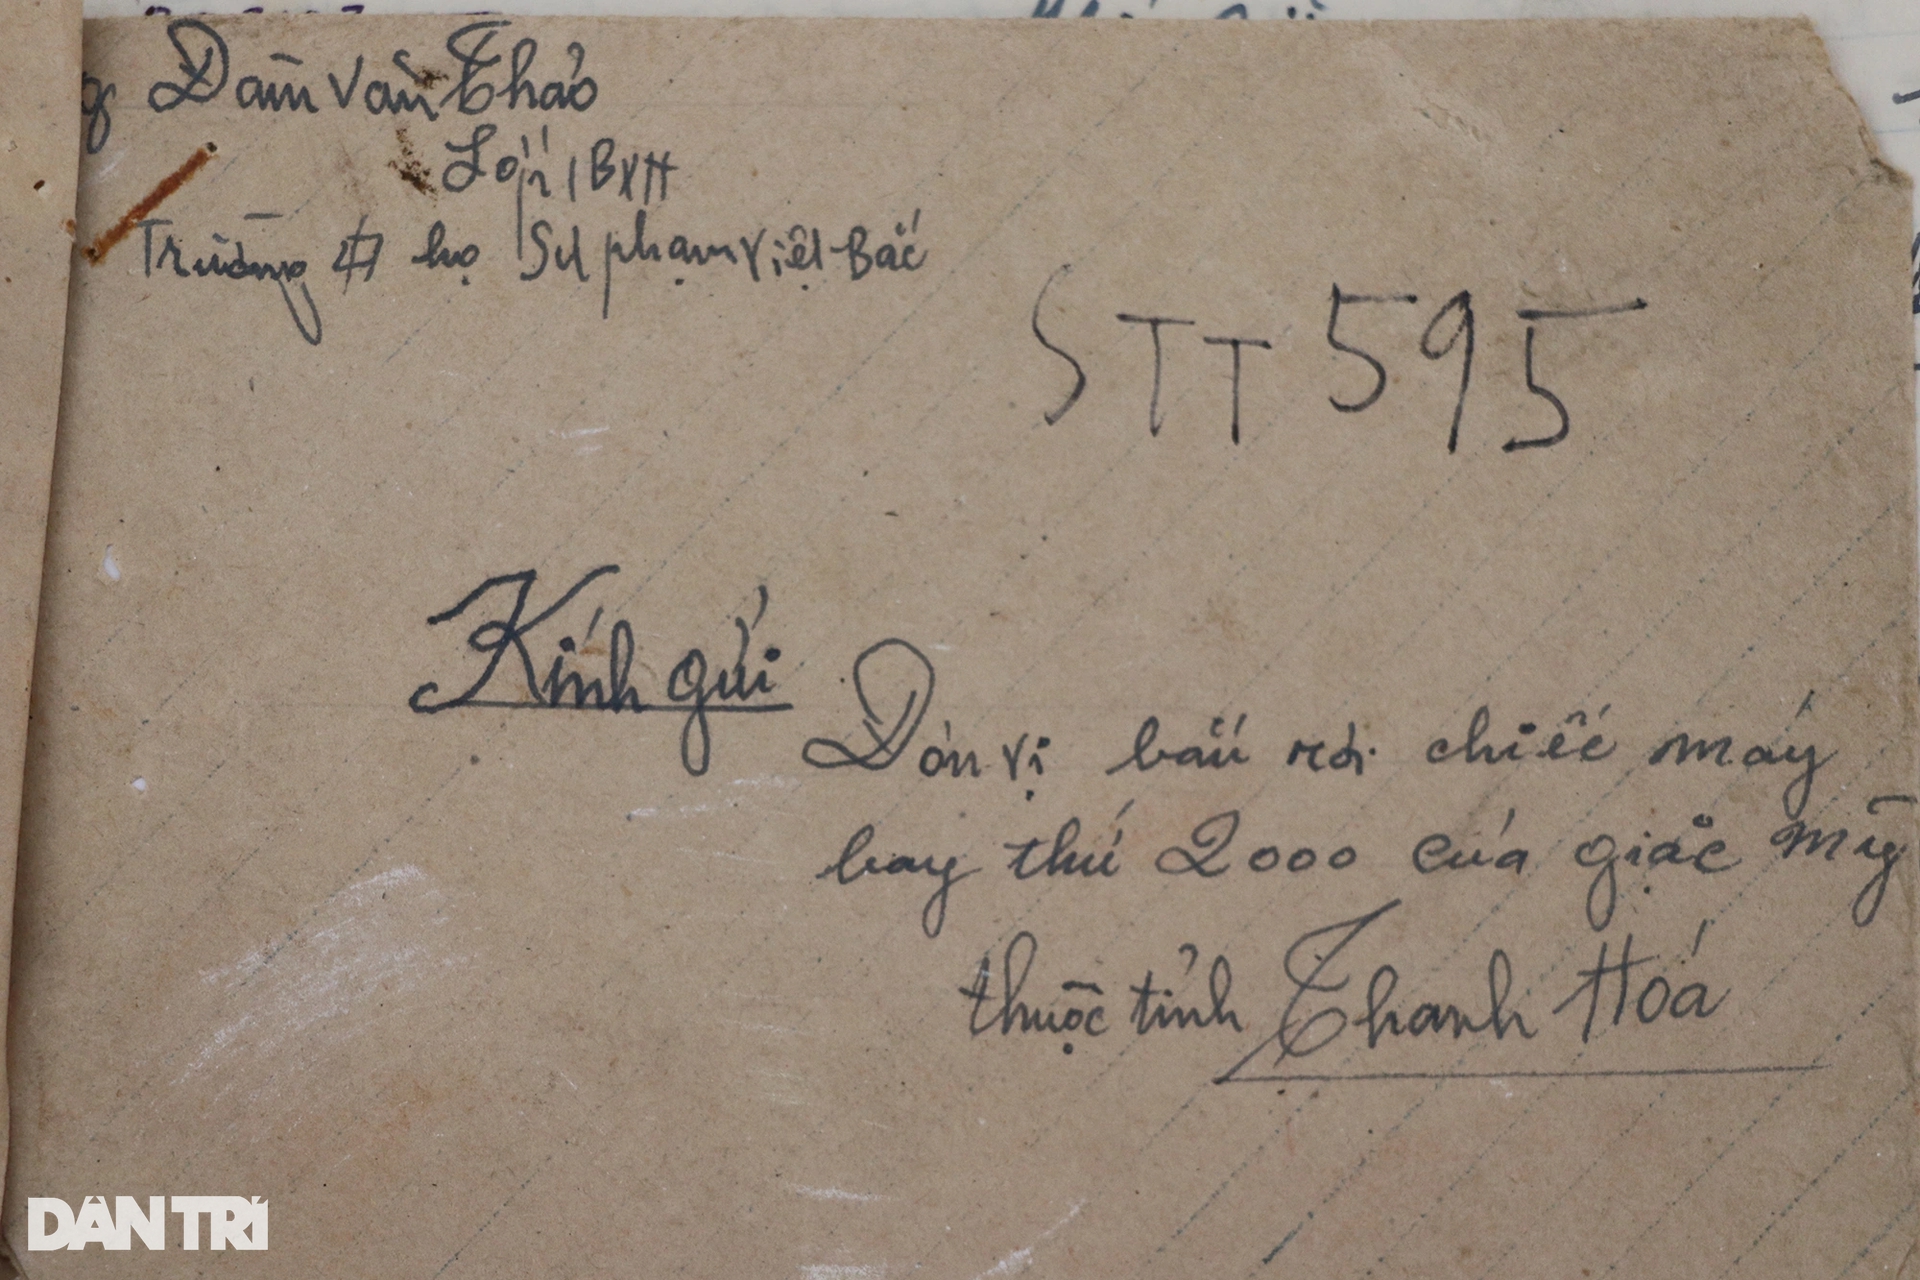 Đàm Văn Thảo
Lớp 1BXH
Trường họ Sư phạm Việt Bắc
STT 595
Kính gửi
Đơn vị bắn rơi chiếc máy
bay thứ 2000 của giặc Mỹ
thuộc tỉnh Thanh Hoá
DÂN TRÍ